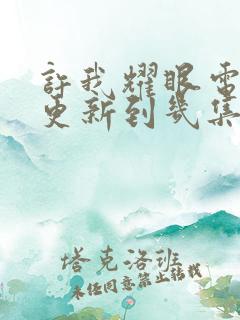 許我耀眼電
更新到幾集
塔克洛班
未经同意禁止转载